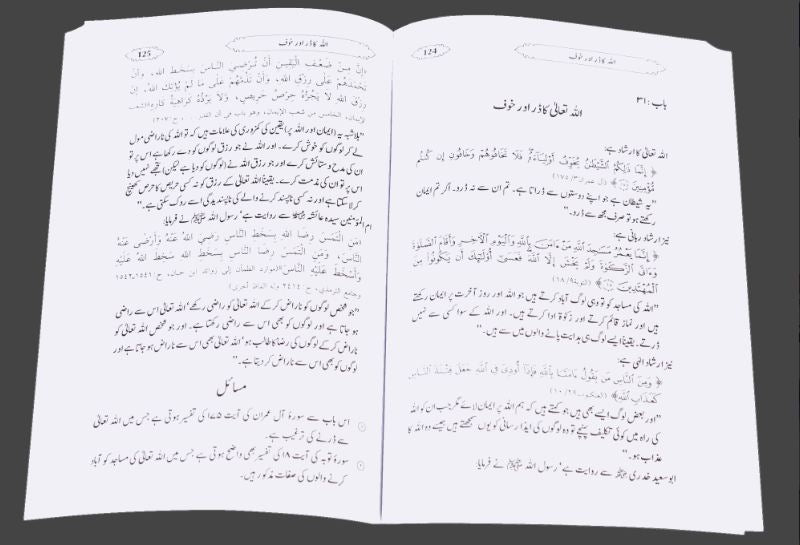 124
اللہ کا ڈر اور خوف
باب : ۳۱
اللہ تعالیٰ کا ڈر اور خوف
اللہ تعالیٰ کا ارشاد ہے:
﴿ إِنَّمَا ذَٰلِكُمُ ٱلشَّيْطَٰنُ يُخَوِّفُ أَوْلِيَآءَهُۥ فَلَا تَخَافُوهُمْ وَخَافُونِ إِن كُنتُم
مُّؤْمِنِينَ ﴾ (آل عمران۳/ ۱۷۵)
”یہ شیطان ہے جو اپنے دوستوں سے ڈراتا ہے۔ تم ان سے نہ ڈرو۔ اگر تم ایمان
رکھتے ہو تو صرف مجھ سے ڈرو۔“
نیز ارشاد ربانی ہے:
﴿ إِنَّمَا يَعْمُرُ مَسَٰجِدَ ٱللَّهِ مَنْ ءَامَنَ بِٱللَّهِ وَٱلْيَوْمِ ٱلْءَاخِرِ وَأَقَامَ ٱلصَّلَوٰةَ
وَءَاتَى ٱلزَّكَوٰةَ وَلَمْ يَخْشَ إِلَّا ٱللَّهَ فَعَسَىٰٓ أُو۟لَٰٓئِكَ أَن يَكُونُوا۟ مِنَ
ٱلْمُهْتَدِينَ ﴾ (التوبة۹/ ۱۸)
”اللہ کی مساجد کو تو وہی لوگ آباد کرتے ہیں جو اللہ اور روز آخرت پر ایمان رکھتے
ہیں اور نماز قائم کرتے اور زکوۃ ادا کرتے ہیں۔ اور اللہ کے سوا کسی سے نہیں
ڈرتے۔ یقیناً ایسے لوگ ہی ہدایت پانے والوں میں سے ہیں۔“
نیز ارشاد الہی ہے:
﴿ وَمِنَ ٱلنَّاسِ مَن يَقُولُ ءَامَنَّا بِٱللَّهِ فَإِذَآ أُوذِىَ فِى ٱللَّهِ جَعَلَ فِتْنَةَ ٱلنَّاسِ
كَعَذَابِ ٱللَّهِ﴾ (العنكبوت۲۹/ ۱۰)
”اور بعض لوگ ایسے بھی ہیں جو کہتے ہیں کہ ہم اللہ پر ایمان لائے مگر جب ان کو اللہ
کی راہ میں کوئی تکلیف پہنچے تو وہ لوگوں کی ایذا رسانی کو یوں سمجھتے ہیں جیسے وہ اللہ کا
عذاب ہو۔“
ابو سعید خدری ؓ سے روایت ہے‘ رسول اللہ ﷺ نے فرمایا:
125
اللہ کا ڈر اور خوف
«إِنَّ مِنْ ضَعْفِ الْيَقِينِ أَنْ تُرْضِيَ النَّاسَ بِسَخَطِ اللهِ، وَأَنْ
تَحْمَدَهُمْ عَلَى رِزْقِ اللهِ، وَأَنْ تَذُمَّهُمْ عَلَى مَا لَمْ يُؤْتِكَ اللهُ، إِنَّ
رِزْقَ اللهِ لَا يَجُرُّهُ حِرْصُ حَرِيصٍ، وَلَا يَرُدُّهُ كَرَاهِيَةُ كَارِهٍ»(شعب
الإيمان، الخامس من شعب الإيمان، وهو باب في أن القدر ... ح:۲۰۷)
”بلاشبہ یہ (ایمان اور اللہ پر) یقین کی کمزوری کی علامات ہیں کہ تو اللہ کی ناراضی مول
لے کر لوگوں کو خوش کرے۔ اور اللہ نے جو رزق لوگوں کو دے رکھا ہے اس پر تو
ان کی مدح و ستائش کرے اور جو رزق اللہ نے (لوگوں کو دیا ہے لیکن) تجھے نہیں دیا
اس پر تو ان کی مذمت کرے۔ یقیناً اللہ تعالیٰ کے رزق کو نہ کسی حریص کا حرص کھینچ
کر لا سکتا ہے اور نہ کسی ناپسند کرنے والے کی ناپسندیدگی اسے روک سکتی ہے۔“
ام المومنین سیدہ عائشہ ؓ سے روایت ہے‘ رسول اللہ ﷺ نے فرمایا:
«مَنِ الْتَمَسَ رِضَا اللهِ بِسَخَطِ النَّاسِ رَضِيَ اللهُ عَنْهُ وَأَرْضَى عَنْهُ
النَّاسَ، وَمَنِ الْتَمَسَ رِضَا النَّاسِ بِسَخَطِ اللهِ سَخِطَ اللهُ عَلَيْهِ
وَأَسْخَطَ عَلَيْهِ النَّاسَ»(موارد الظمآن إلى زوائد ابن حبان، ح:۱۵٤۱-۱۵٤۲
وجامع الترمذي، ح:۲٤۱٤ وله ألفاظ أخرى)
”جو شخص لوگوں کو ناراض کر کے اللہ تعالیٰ کو راضی رکھے‘ اللہ تعالیٰ اس سے راضی
ہو جاتا ہے اور لوگوں کو بھی اس سے راضی رکھتا ہے۔ اور جو شخص اللہ تعالیٰ کو
ناراض کر کے لوگوں کی رضا کا طالب ہو‘ اللہ تعالیٰ بھی اس سے ناراض ہو جاتا ہے اور
لوگوں کو بھی اس سے ناراض کر دیتا ہے۔“
مسائل
اس باب سے سورۂ آل عمران کی آیت ۱۷۵ کی تفسیر ہوتی ہے جس میں اللہ تعالیٰ
سے ڈرنے کی ترغیب ہے۔
سورۂ توبہ کی آیت ۱۸ کی تفسیر بھی واضح ہوتی ہے جس میں اللہ تعالیٰ کی مساجد کو آباد
کرنے والوں کی صفات مذکور ہیں۔